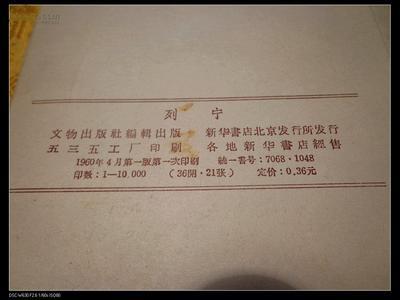 列宁
文物出版社編輯出版 新华書店北京发行所发行
五三五工厂印刷 各地新华書店經售
1960年4月第一版第一次印刷 統一書号：7068·1048
印数：1—10,000 (36開·21张) 定价：0.36元